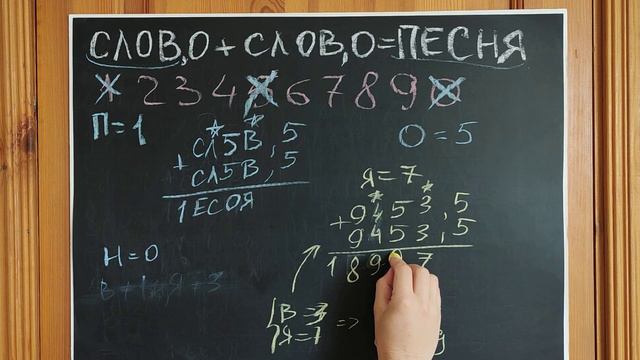 СЛОВ,О + СЛОВ,О = ПЕСНЯ
1 2 3 4 5 6 7 8 9 0
П = 1
О = 5
СЛ5В,5
+
СЛ5В,5
1ЕСОЯ
Я = 7
9453,5
+
9453,5
18907
Н = 0
В = 3
=>